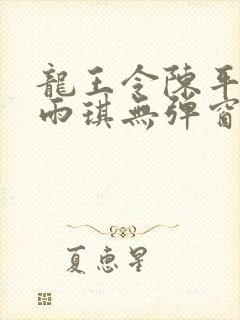 龍王令陳平
雨琪無彈窗
夏惠星